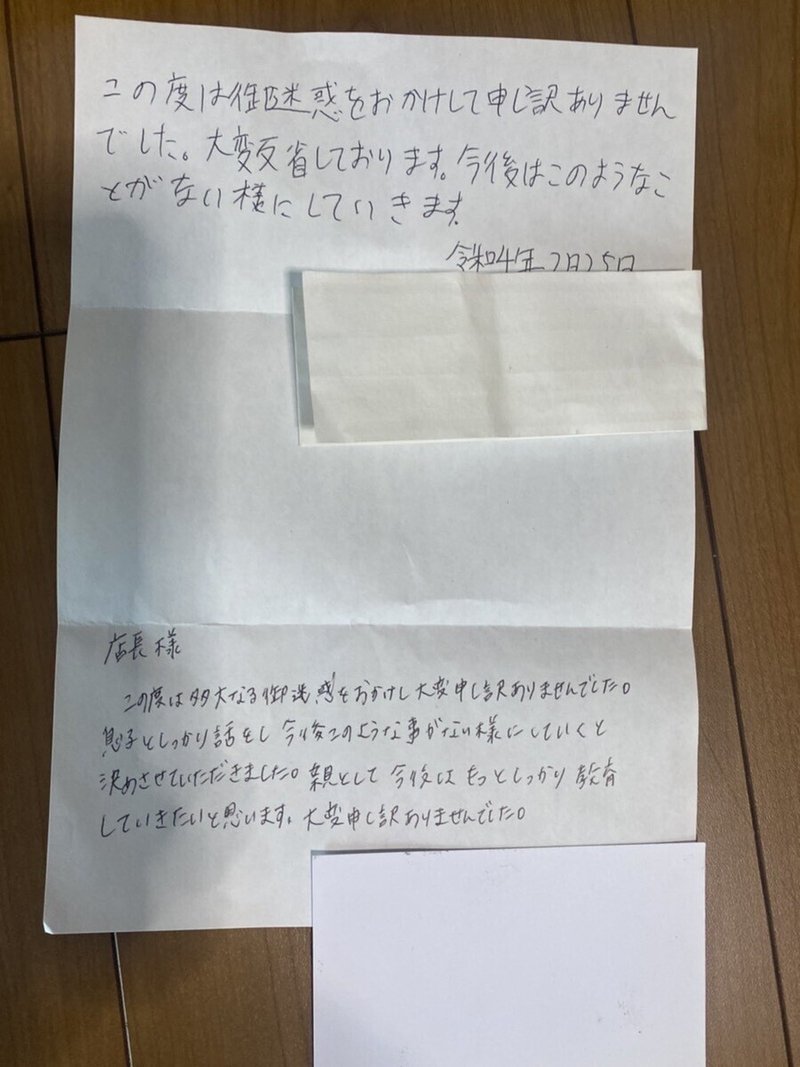 この度は御迷惑をおかけして申し訳ありません
でした。大変反省しております。今後はこのようなこ
とがない様にしていきます。
令和4年7月25日
店長様
この度は多大なる御迷惑をおかけし大変申し訳ありませんでした。
息子としっかり話をし今後このような事がない様にしていくと
決めさせていただきました。親として今後はもっとしっかり教育
していきたいと思います。大変申し訳ありませんでした。